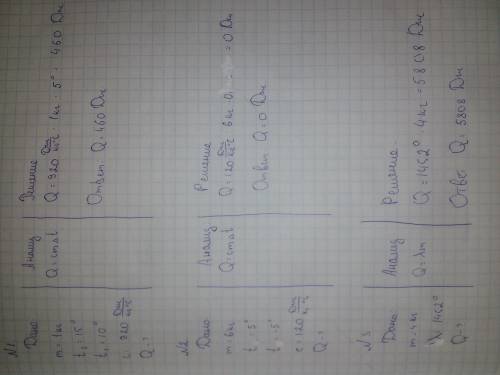 N1
Дано
m = 1кг
t₂ = 15°
t₁ = 10°
c 920 Дж/кг°С
Q - ?
Анализ
Q = cmΔt
Решение
Q = 920 Дж/кг°С · 1кг 5° 460 Дж
Ответ Q = 460 Дж
N2
Дано
m = 6кг
t - 5°
t - 5°
c = 120 Дж/кг°С
Q - ?
Анализ
Q = cmΔt
Решение
Q = 120 Дж/кг°С 6кг 0 = 0 Дж
Ответ Q = 0 Дж
N3
Дано
m = 4кг
λ 1452°
Q - ?
Анализ
Q = λm
Решение
Q = 1452° · 4кг = 5808 Дж
Ответ Q = 5808 Дж